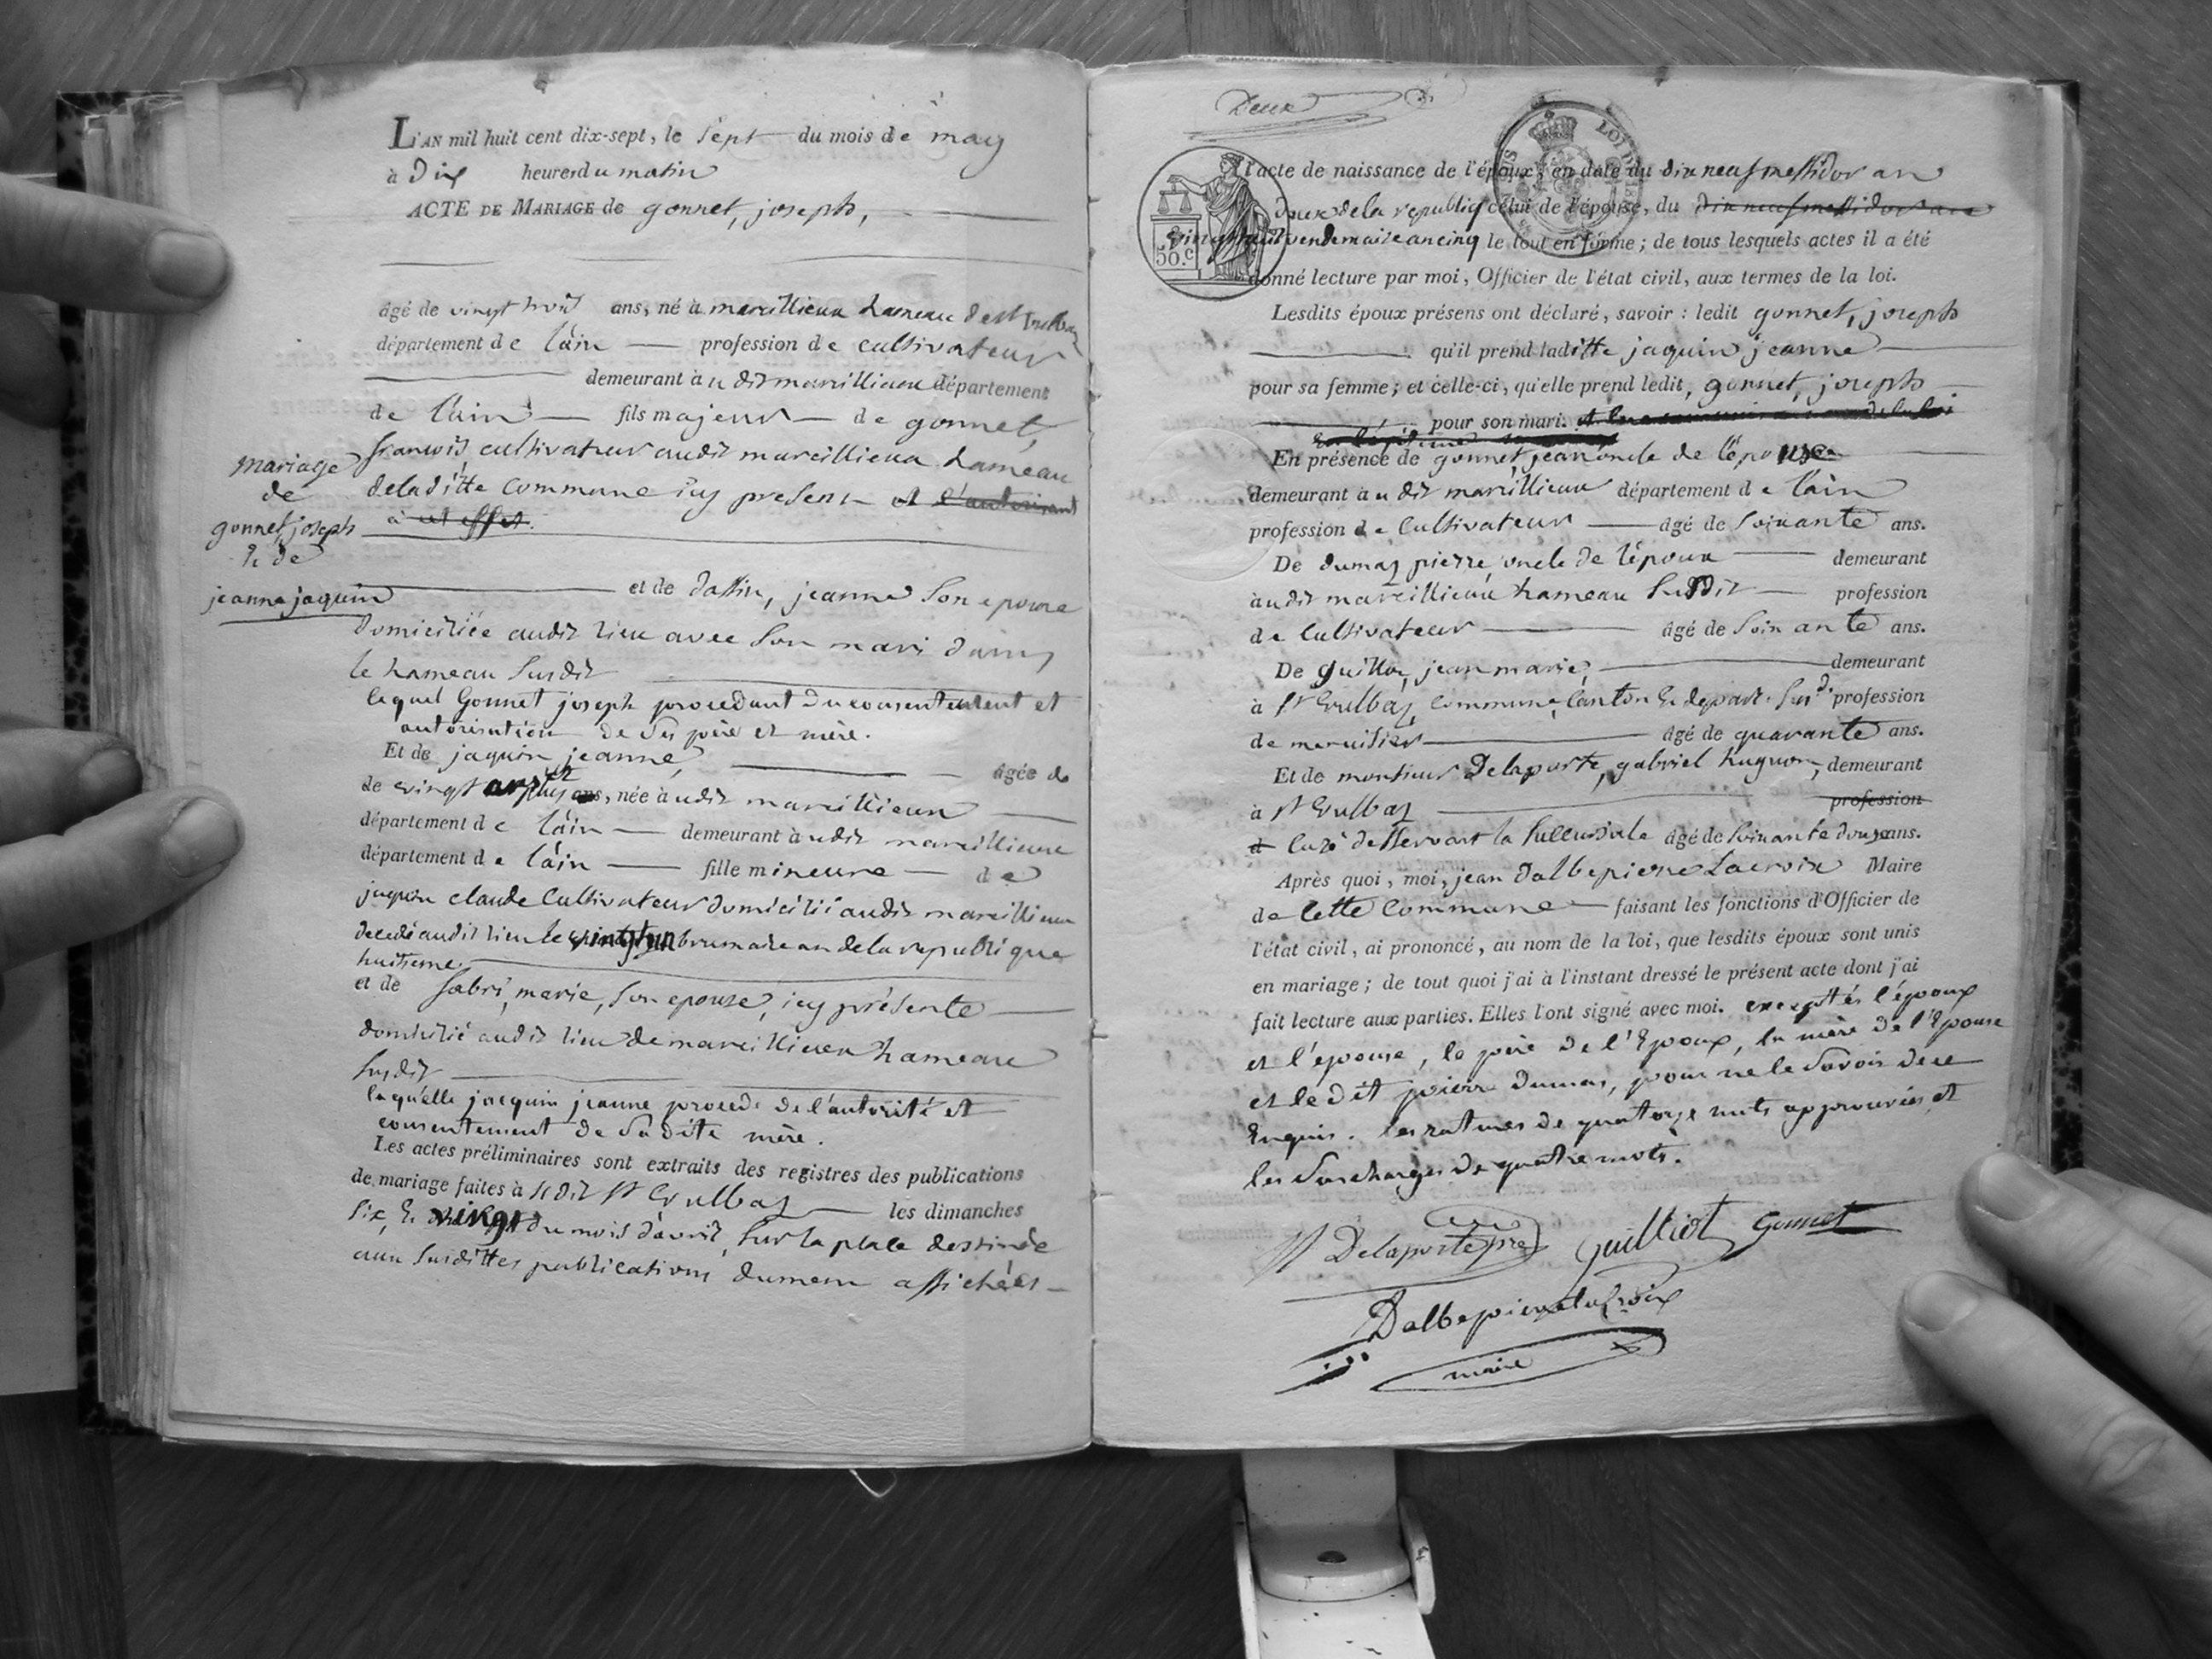 L'AN mil huit cent dix-sept, le sept du mois de may
à dix heures du matin
ACTE DE MARIAGE de gonnet, joseph,
âgé de vingt trois ans, né à marcillieux hameau de st vulbas
département de l'ain profession de cultivateur
demeurant au dit marcillieux département
de l'ain fils majeur de gonnet,
francois cultivateur audit marcillieux hameau
de laditte commune icy present et l'autorisant
à cet effet.
mariage
de
gonnet, joseph
& de
jeanne jaquin
et de dassin, jeanne son epouse
domiciliée audit lieu avec son mari dans
le hameau susdit
lequel Gonnet joseph procedant du consentement et
autorisation de ses père et mère.
Et de jaquin jeanne, âgée de
de vingt ans, née audit marcillieux
département de l'ain demeurant audit marcillieux
département de l'ain fille mineure de
jaquin claude cultivateur domicilié audit marcillieux
decedé audit lieu le vingt un brumaire an de la republique
huitieme.
et de fabri, marie, son epouse, icy présente
domicilié audit lieu de marcillieux hameau
susdit
laqu'elle jacquin jeanne procede de l'autorité et
consentement de sa dite mère.
Les actes préliminaires sont extraits des registres des publications
de mariage faites à sedit st vulbas les dimanches
six, & vingt du mois d'avril, sur la place destinée
aux susdittes publications dument affichées
Deux
l'acte de naissance de l'époux, en date du dix neuf messidor an
deux de la republiq celui de l'épouse, du dix neuf messidor an
50.c vingt huit vendemaire an cinq le tout en forme; de tous lesquels actes il a été
donné lecture par moi, Officier de l'état civil, aux termes de la loi.
Lesdits époux présens ont déclaré, savoir: ledit gonnet, joseph
qu'il prend laditte jaquin jeanne
pour sa femme; et celle-ci, qu'elle prend ledit, gonnet, joseph
pour son mari.
En présence de gonnet, jean oncle de l'épouse
demeurant au dit marcillieux département de l'ain
profession de cultivateur âgé de soixante ans.
De dumas pierre, oncle de l'époux demeurant
audit marcillieux hameau susdit profession
de cultivateur âgé de soixante ans.
De guillot, jean marie, demeurant
à st vulbas, commune, canton & depart. susd. profession
de menuisier âgé de quarante ans.
Et de monsieur Delaporte, gabriel hugon, demeurant
à st vulbas profession
d curé desservant la succursale âgé de soixante douze ans.
Après quoi, moi, jean dalbepierre Lacroix Maire
de cette commune faisant les fonctions d'Officier de
l'état civil, ai prononcé, au nom de la loi, que lesdits époux sont unis
en mariage; de tout quoi j'ai à l'instant dressé le présent acte dont j'ai
fait lecture aux parties. Elles l'ont signé avec moi. exceptés l'époux
et l'epouse, le père de l'Epoux, la mère de l'Epouse
et le dit pierre Dumas, pour ne le savoir de ce
Enquis. les ratures de quatorze mots approuvées et
les surcharges de quatre mots.
Delaporte pre Guilliot Gonnet
Dalbepierre Lacroix
maire